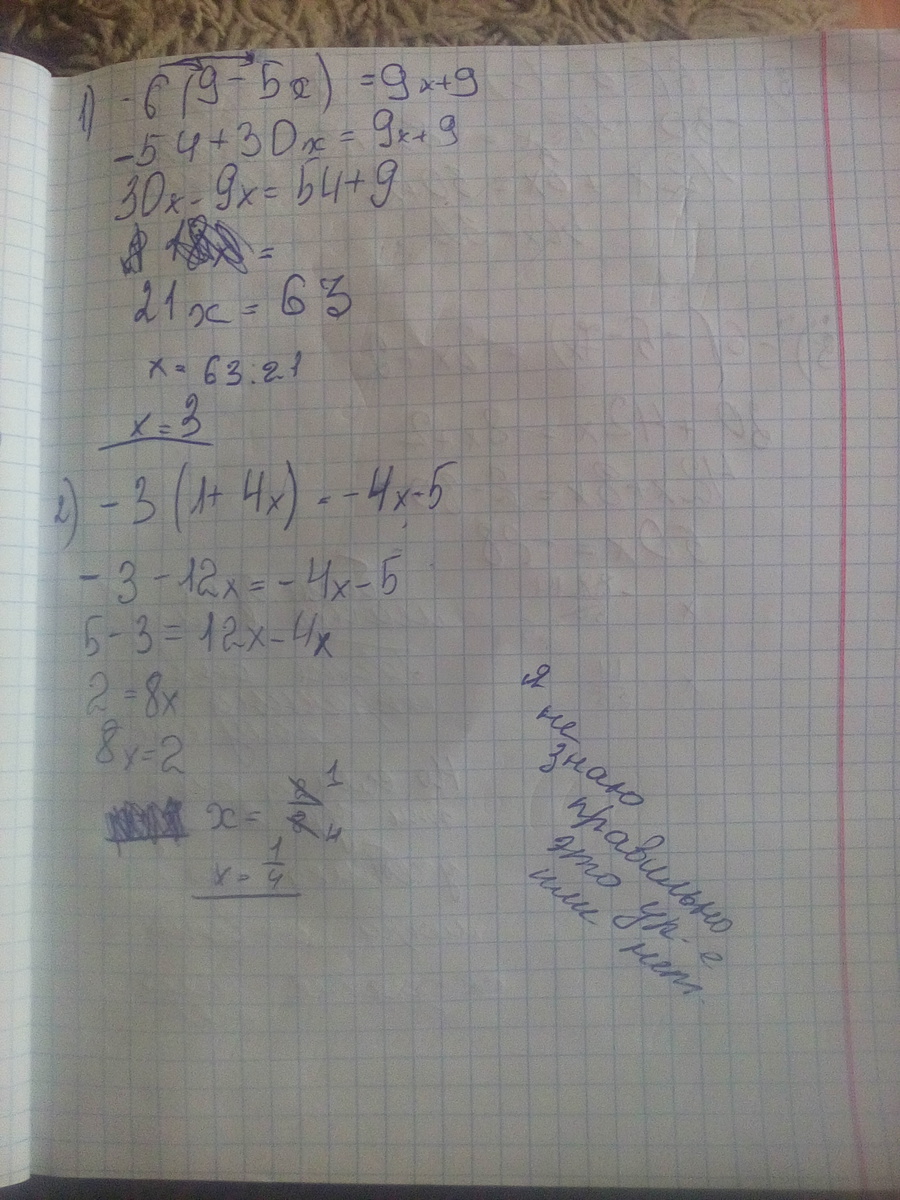 1) -6(9-5x) = 9x+9
-54+30x = 9x+9
30x-9x= 54+9
=
21x = 63
x= 63:21
x=3
2) -3(1+4x) = -4x-5
-3-12x=-4x-5
5-3= 12x-4x
2=8x
8x=2
x= 2/8 1 4
x= 1/4
я
не
знаю
правильно
это ур-е
или нет.